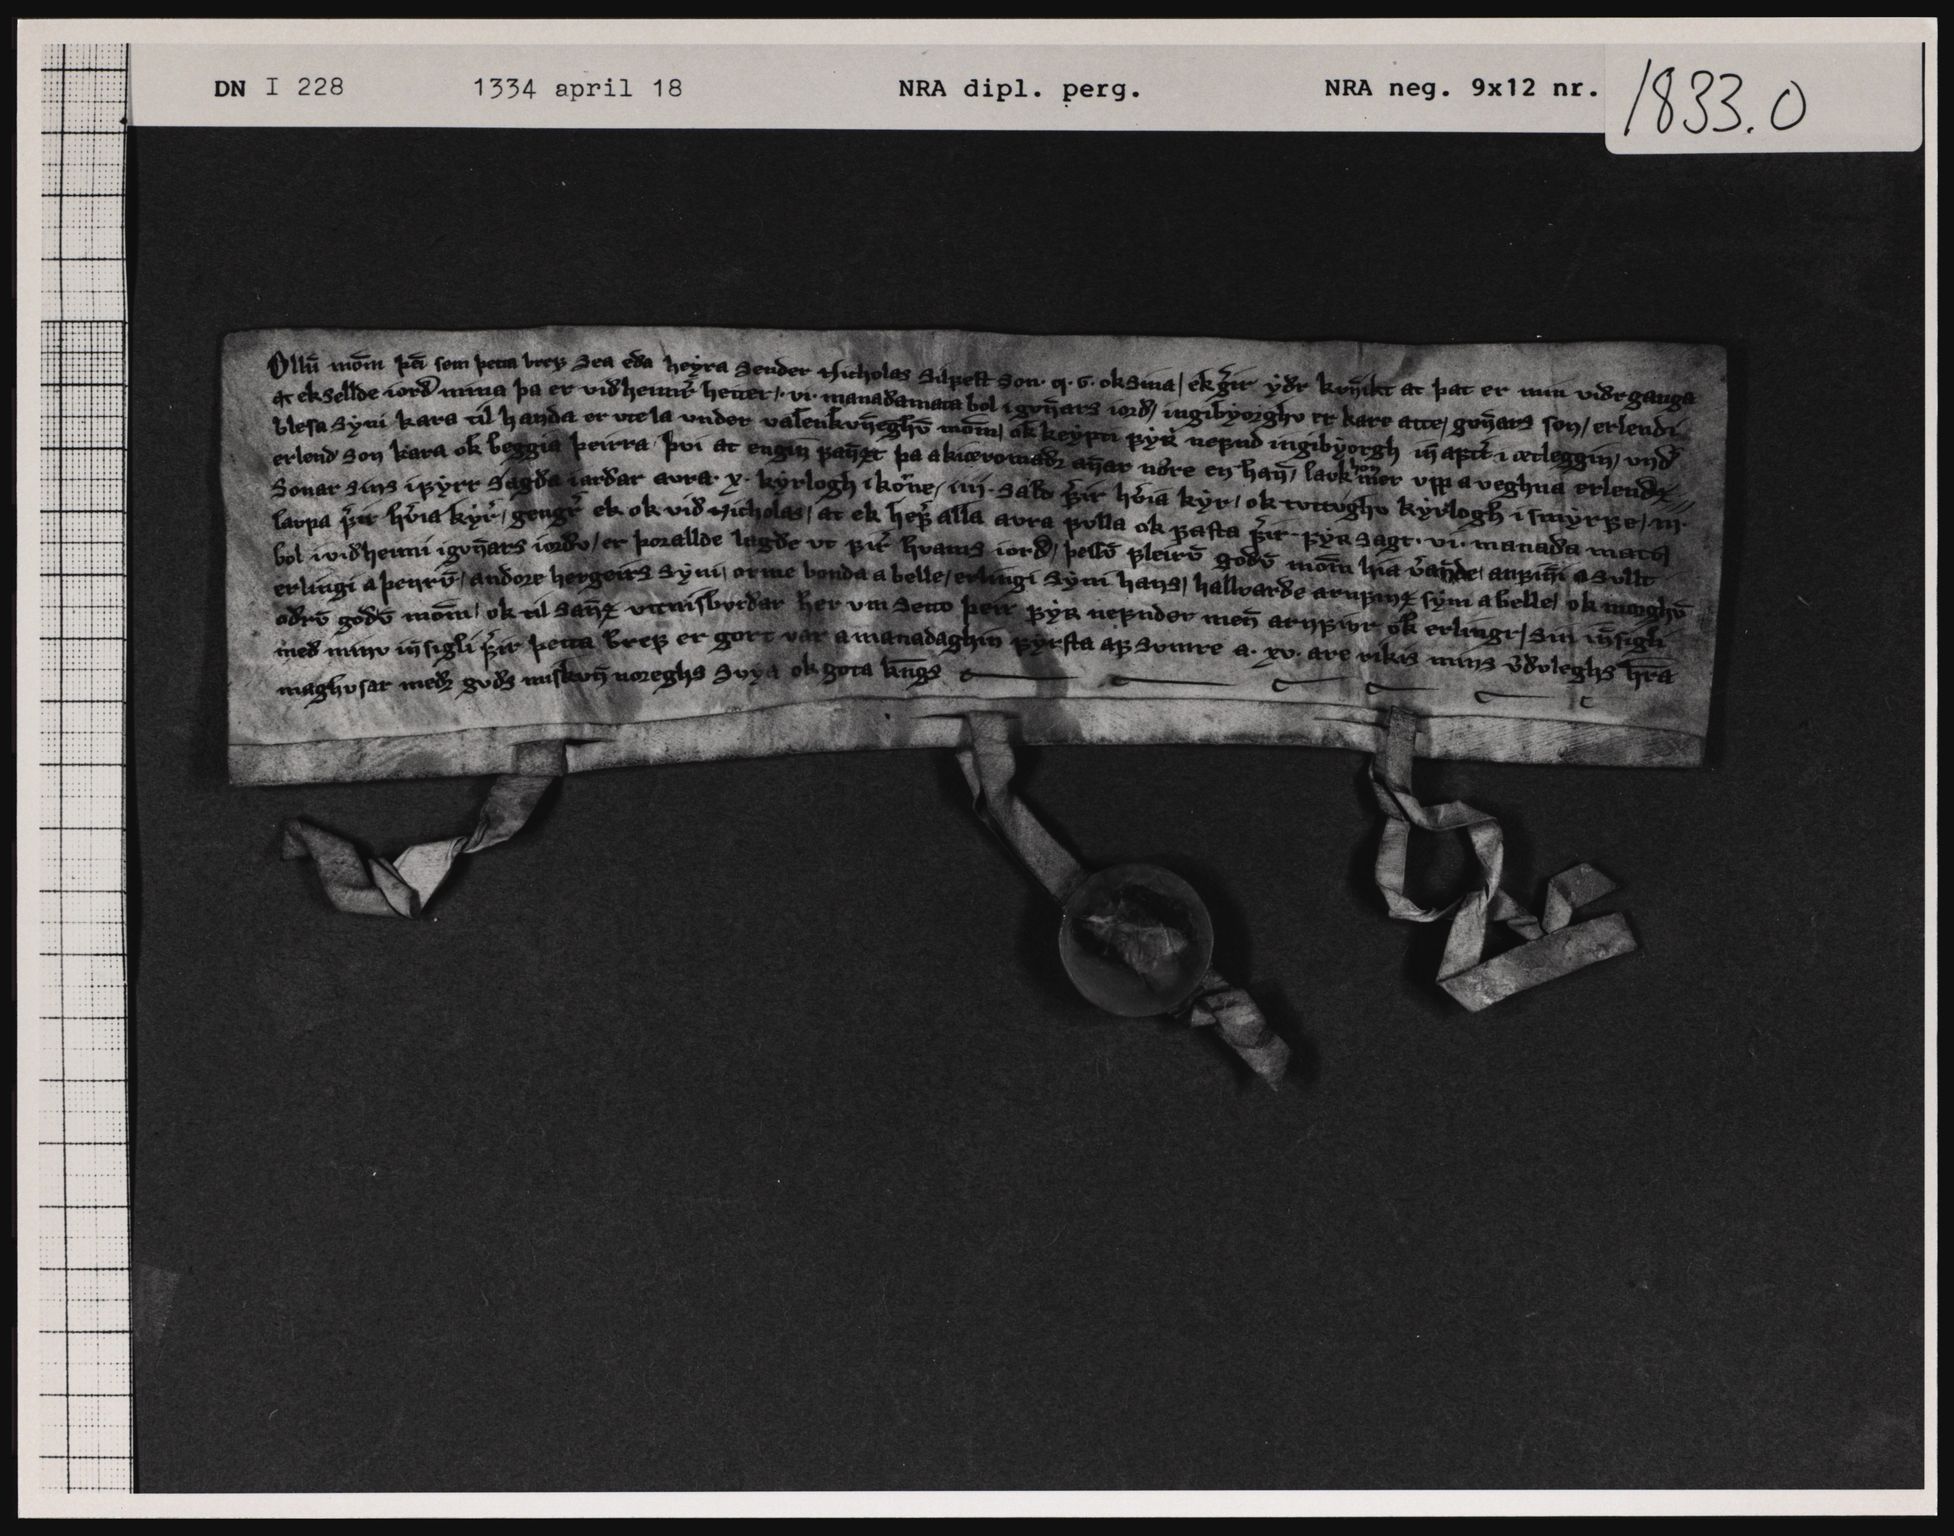 DN I 228 1334 april 18 NRA dipl. perg. NRA neg. 9x12 nr. 1833.0
Ollū mōm þei som þetta bref sea eda heyra sender Nicholas Silfest son. q. G. ok sina / ek gir ydr kvñikt at þat er min vidrganga
at ek sellde iord mina þa er vidheimr heiter / vi manadamata bol i gvñars iord / ingibyorghv er kare atte / gvñars son / erlendi
blesa syni kara til handa er vtela vnder valenkvñeghv̄ mōm / ok keypti fyr nefnd ingibyorgh iñ aptr i ætleggin / vnd
erlend son kara ok beggia þeirra þvi at engin fañzt þa akiæromadr añar nǽre en hañ / lauk hon mer vpp a veghna erlendz
sonar sins i fyrr sagda iardar avra. x. kyrlogh i korne / iiij. sald fir hveria kyr / ok tvttvghv kyrlogh i smyrfe / iij.
laupa fir hveria kyr / gengr ek ok vid Nicholas / at ek hefi alla avra fvlla ok fasta fir fyr sagt vi manada mata
bol i vidheimi i gvñars iordv / er þorallde lagde vt fir hvams iord / þessv̄ fleirv̄ godv̄ mōm hia verande / anfiñi a svllt
erlingi a þenrv̄ / andore hergeirs syni / orme bonda a belle / erlingi syni hans / hallvarde arnfinz syni a belle / ok morghv̄
odrv̄ godv̄ mōm / ok til sañz vitnisbvrdar her vm setto þeir fyr nefnder meñ arnfinr ok erlingr / sin iñsigli
med minv iñsigli fir þetta bref er gort var a manadaghin fyrsta af svmre a. xv. are rikis mins v̄dvleghs hr̄a
maghvsar medr gvds miskvñ noreghs svya ok gota kn̄gs